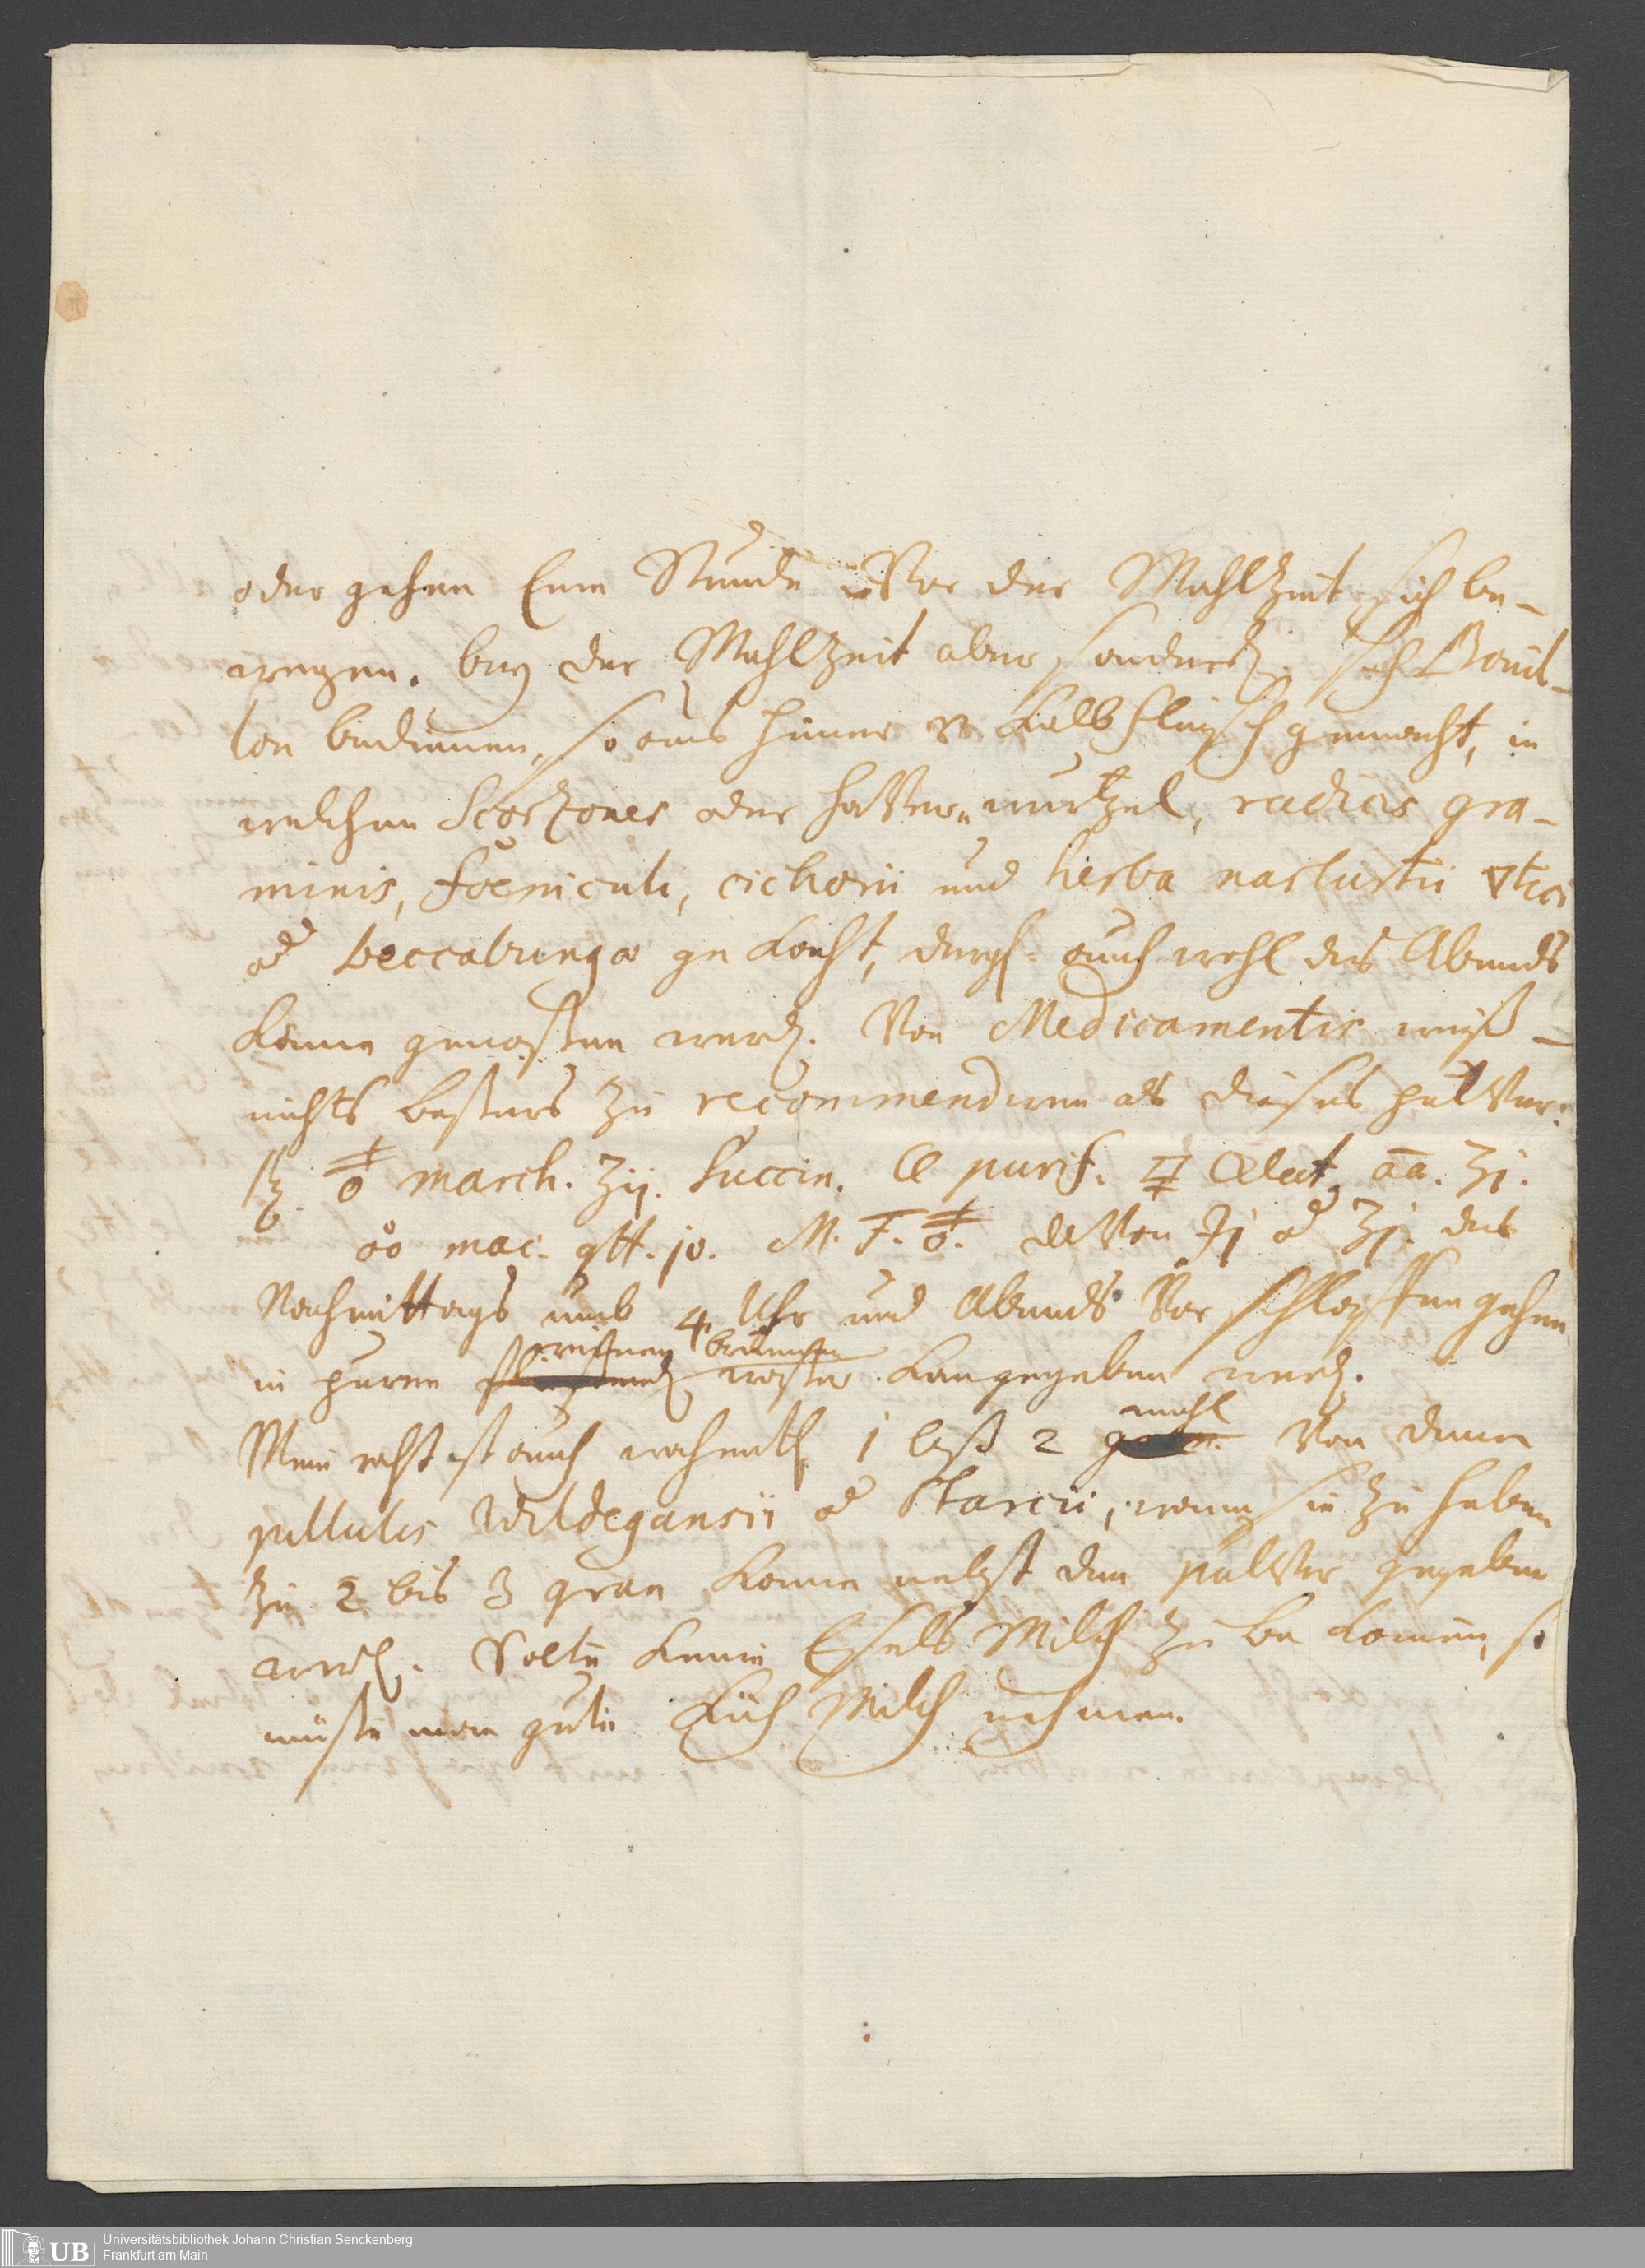 oder gehen Eine Stunde Vor der Mahlzeit sich be-
wegen. bey der Mahlzeit aber sonderl. sich Bouil-
lon bedienen, so aus hüner u. Kalbfleisch gemacht, in
welchen Scorzoner oder haberwurtzel, radices gra-
minis, foeniculi, cichorii und herba nasturtii ▽tici
od beccabunga gekocht, auch wohl des Abends
könne genossen werd. Von Medicamentis weiß
nichts bessers zu recommendiren als dieses pulver:
℞. march. ʒij. Succin. purif. elect. āā. ʒj.
mac. gtt. jo. M. F. davon ℈j od ʒj. des
Nachmittags umb 4 Uhr und Abends Vor schlaffen gehen
in puren brunnen
wasser kan gegeben werd.
mahl
Mein raht ist auch 1 biß 2 Von denen
pillulis Wildegansii od Starcii, wenn sie zu haben
zu 2 bis 3 gran könne nebst dem pulver gegeben
werd. Solte keine Esels Milch zu bekomen, so
müste man gute Küh Milch nehmen.
Universitätsbibliothek Johann Christian Senckenberg
Frankfurt am Main
UB